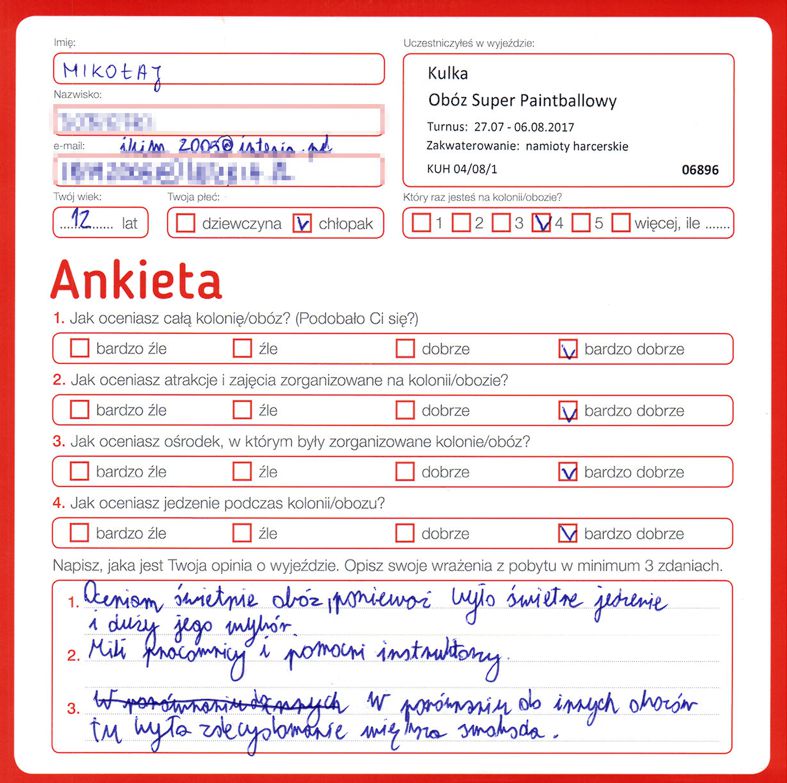 Imię:
MIKOŁAJ
Nazwisko:
e-mail:
2005@interia.pl
Twój wiek:
12 lat
Twoja płeć:
dziewczyna V chłopak
Uczestniczyłeś w wyjeździe:
Kulka
Obóz Super Paintballowy
Turnus: 27.07 - 06.08.2017
Zakwaterowanie: namioty harcerskie
KUH 04/08/1 06896
Który raz jesteś na kolonii/obozie?
1 2 3 V 4 5 więcej, ile .......
Ankieta
1. Jak oceniasz całą kolonię/obóz? (Podobało Ci się?)
bardzo źle źle dobrze V bardzo dobrze
2. Jak oceniasz atrakcje i zajęcia zorganizowane na kolonii/obozie?
bardzo źle źle dobrze V bardzo dobrze
3. Jak oceniasz ośrodek, w którym były zorganizowane kolonie/obóz?
bardzo źle źle dobrze V bardzo dobrze
4. Jak oceniasz jedzenie podczas kolonii/obozu?
bardzo źle źle dobrze V bardzo dobrze
Napisz, jaka jest Twoja opinia o wyjeździe. Opisz swoje wrażenia z pobytu w minimum 3 zdaniach.
1. Oceniam świetnie obóz, ponieważ było świetne jedzenie
i duży jego wybór.
2. Mili pracownicy i pomocni instruktorzy.
3. W porównaniu do innych obozów
tu była zdecydowanie większa swoboda.